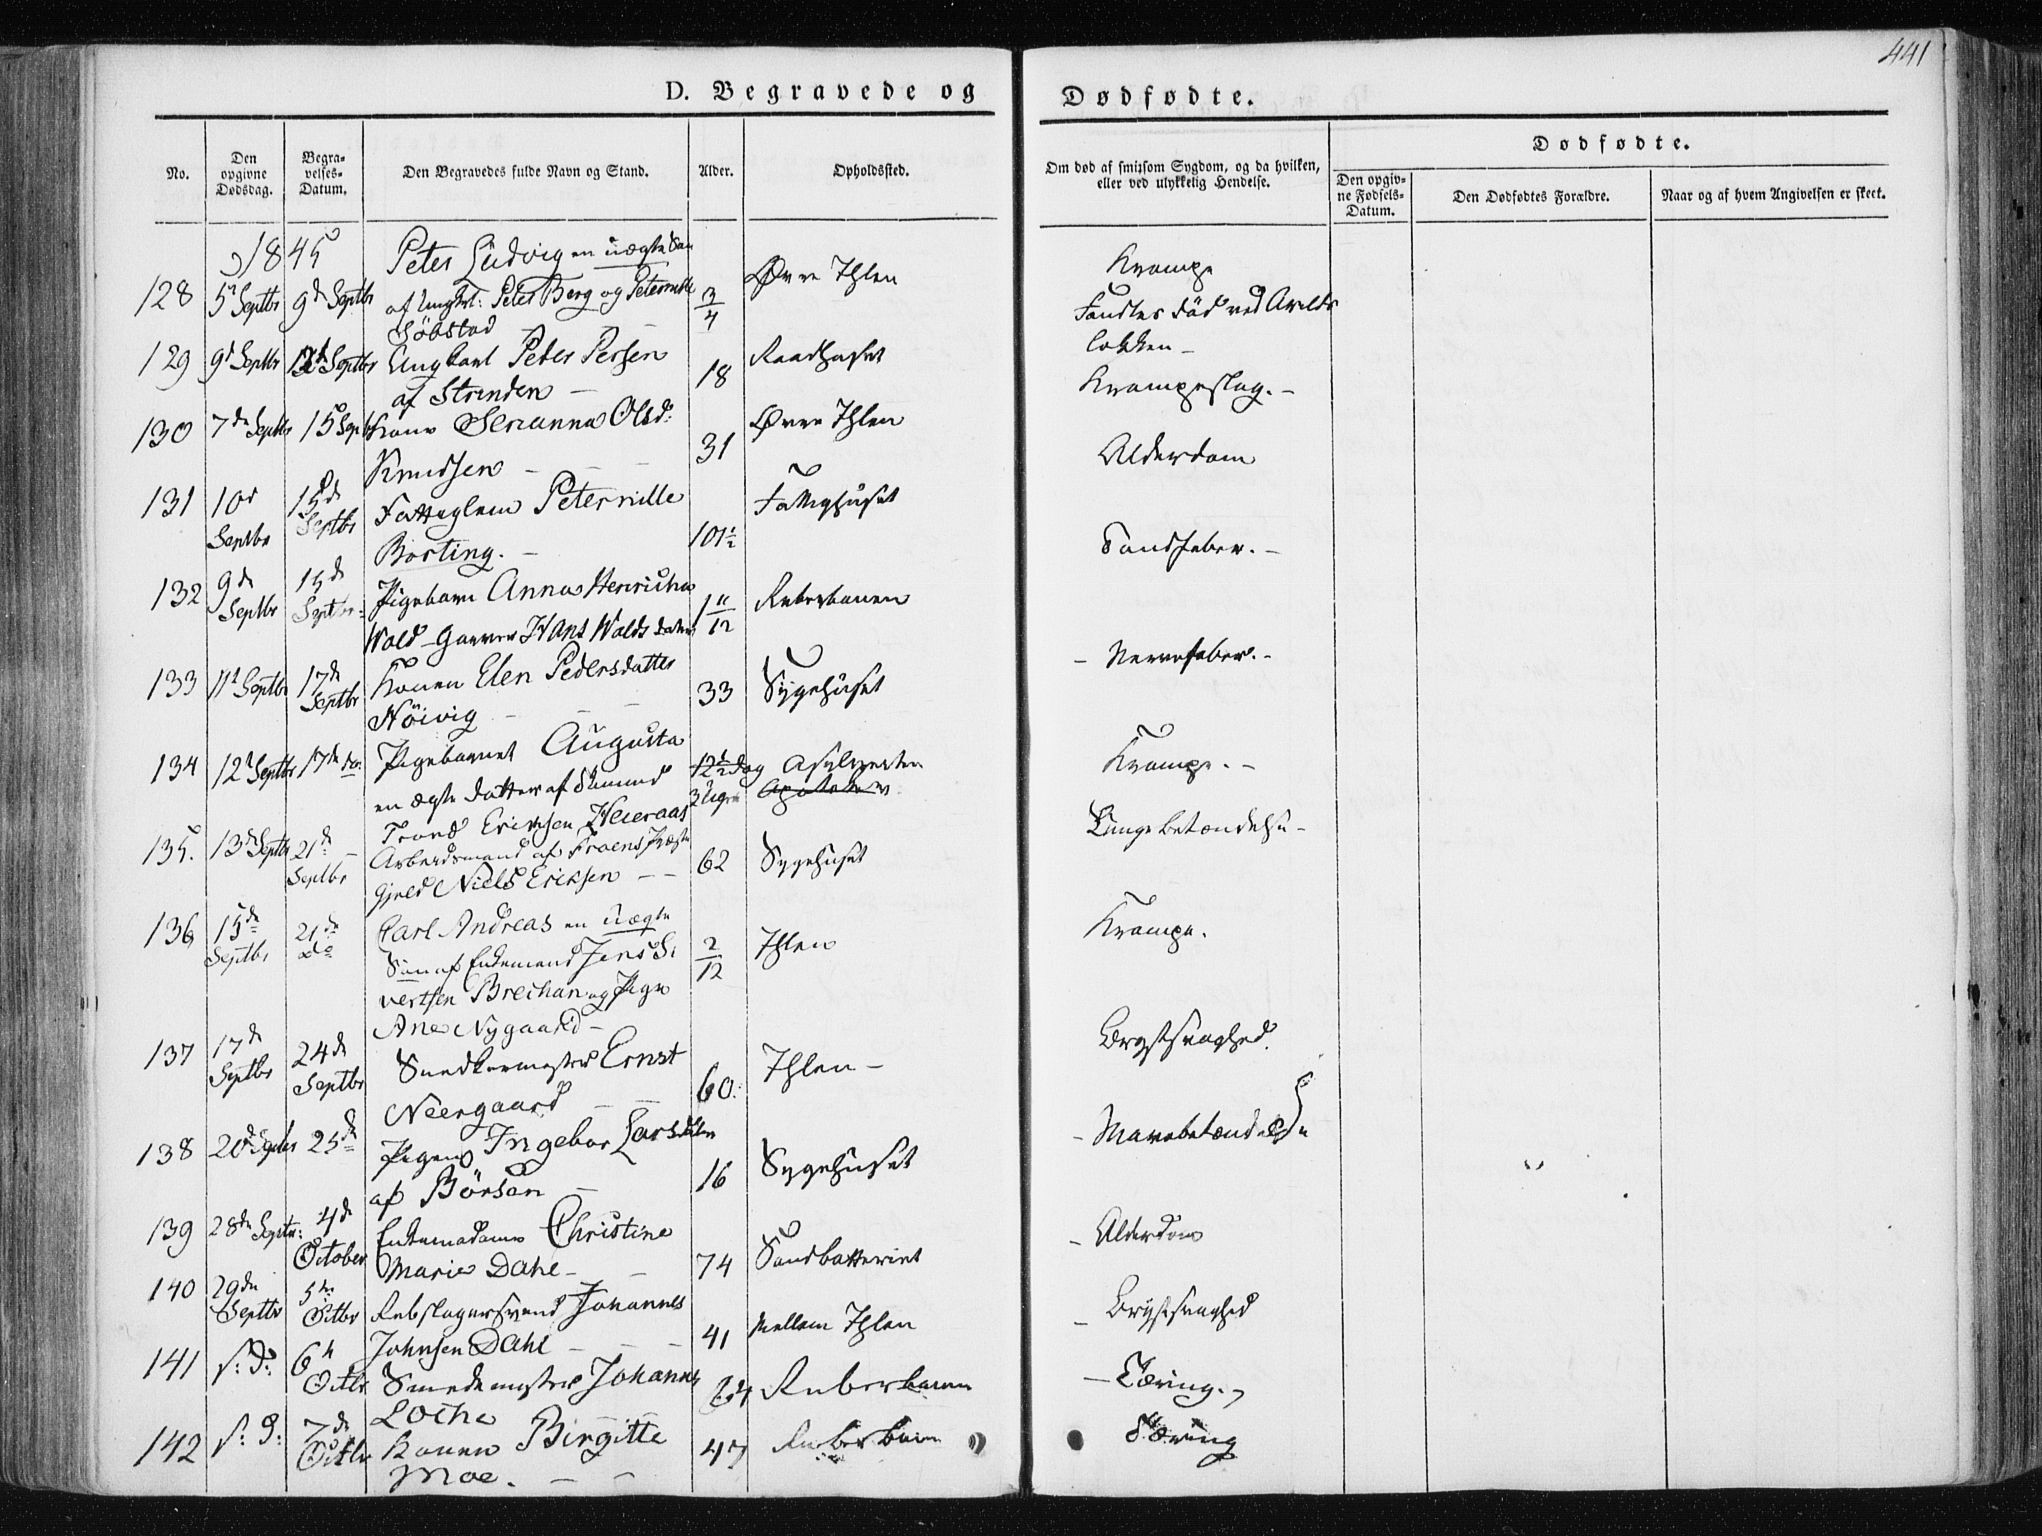 441
D. Begravede og Dødfødte.
No.
Den opgivne Dødsdag.
Begravelses-Datum.
Den Begravedes fulde Navn og Stand.
Alder.
Opholdssted.
Om død af smitsom Sygdom, og da hvilken, eller ved ulykkelig Hendelse.
Dødfødte.
Den opgivne Fødsels-Datum.
Den Dødfødtes Forældre.
Naar og af hvem Angivelsen er skeet.
1845
Peter Ludvig en uægte Søn
128 5t Septbr 9de Septbr af Ungkrl: Peter Berg og Peternille 3/4 Øvre Ihlen Krampe
Söbstad
129 9d Septbr Septbr Ungkarl Peter Persen 18 Raadhuset Fandtes död ved Arilds
af Strinden lokken
130 7de Septbr 15 Septbr Kone Serianna Olsd: 31 Øvre Ihlen Krampeslag.
Knudsen
131 10d Septbr 15de Septbr Fattiglem Peternille 101½ Fattighuset Alderdom
Borting.
132 9de Septbr 15de Septbr Pigebarn Anna Henricha 1 11/12 Reberbanen Tandfeber.
Wold Garver Hans Wolds datter
133 11t Septbr 17de Septbr Konen Elen Pedersdatter 33 Sygehuset Nervefeber.
Nöivig
134 12t Septbr 17de do. Pigebarnet Augusta 12½ dag Krampe.
en ægte datter af 3 Uger
Trond Eriksen Heieraas
135. 13de Septbr 21de Septbr Arbeidsmand af Froens Præste 62 Sygehuset Lungebetændelse
gjeld Niels Eriksen
136 15de Septbr 21de do Carl Andreas en uægte 2/12 Ihlen Krampe.
Sön af Enkemand Jens Si
vertsen Brechan og Pige
Ane Nygaard
137 17de Septbr 24de Septbr Ernst 60. Ihlen Brystsvaghed.
Neergaard
138 20de Septbr 25de Pigen Ingebor Larsdatter 16 Sygehuset Mavebetændelse
af Börsen
139 28de Septbr: 4de October Enkemadame Christine 74 Sandbatteriet Alderdom
Marie Dahl
140 29de Septbr 5te Octbr Rebslagersvend Johannes 41 Mellem Ihlen Brystsvaghed
Johnsen Dahl
141 s: D: 6te Octbr Smedemester Johannes 64 Reberbanen Tæring.
Loche
142 s: D: 7de Octbr Konen Birgitte 47 Reberbanen Tæring
Moe.